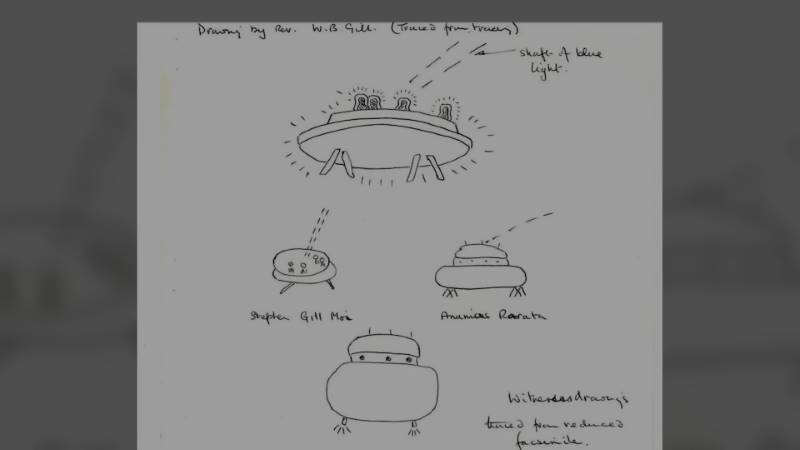 Drawing by Rev. W.B Gill. (Traced from tracing)
shaft of blue
light.
Stephen Gill Moi
Ananias Rarata
Witness drawings
traced from reduced
facsimile.